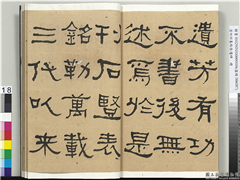 遺芳有功
不書後無
述焉於是
刊石竪表
銘勒萬載
三代以來
18